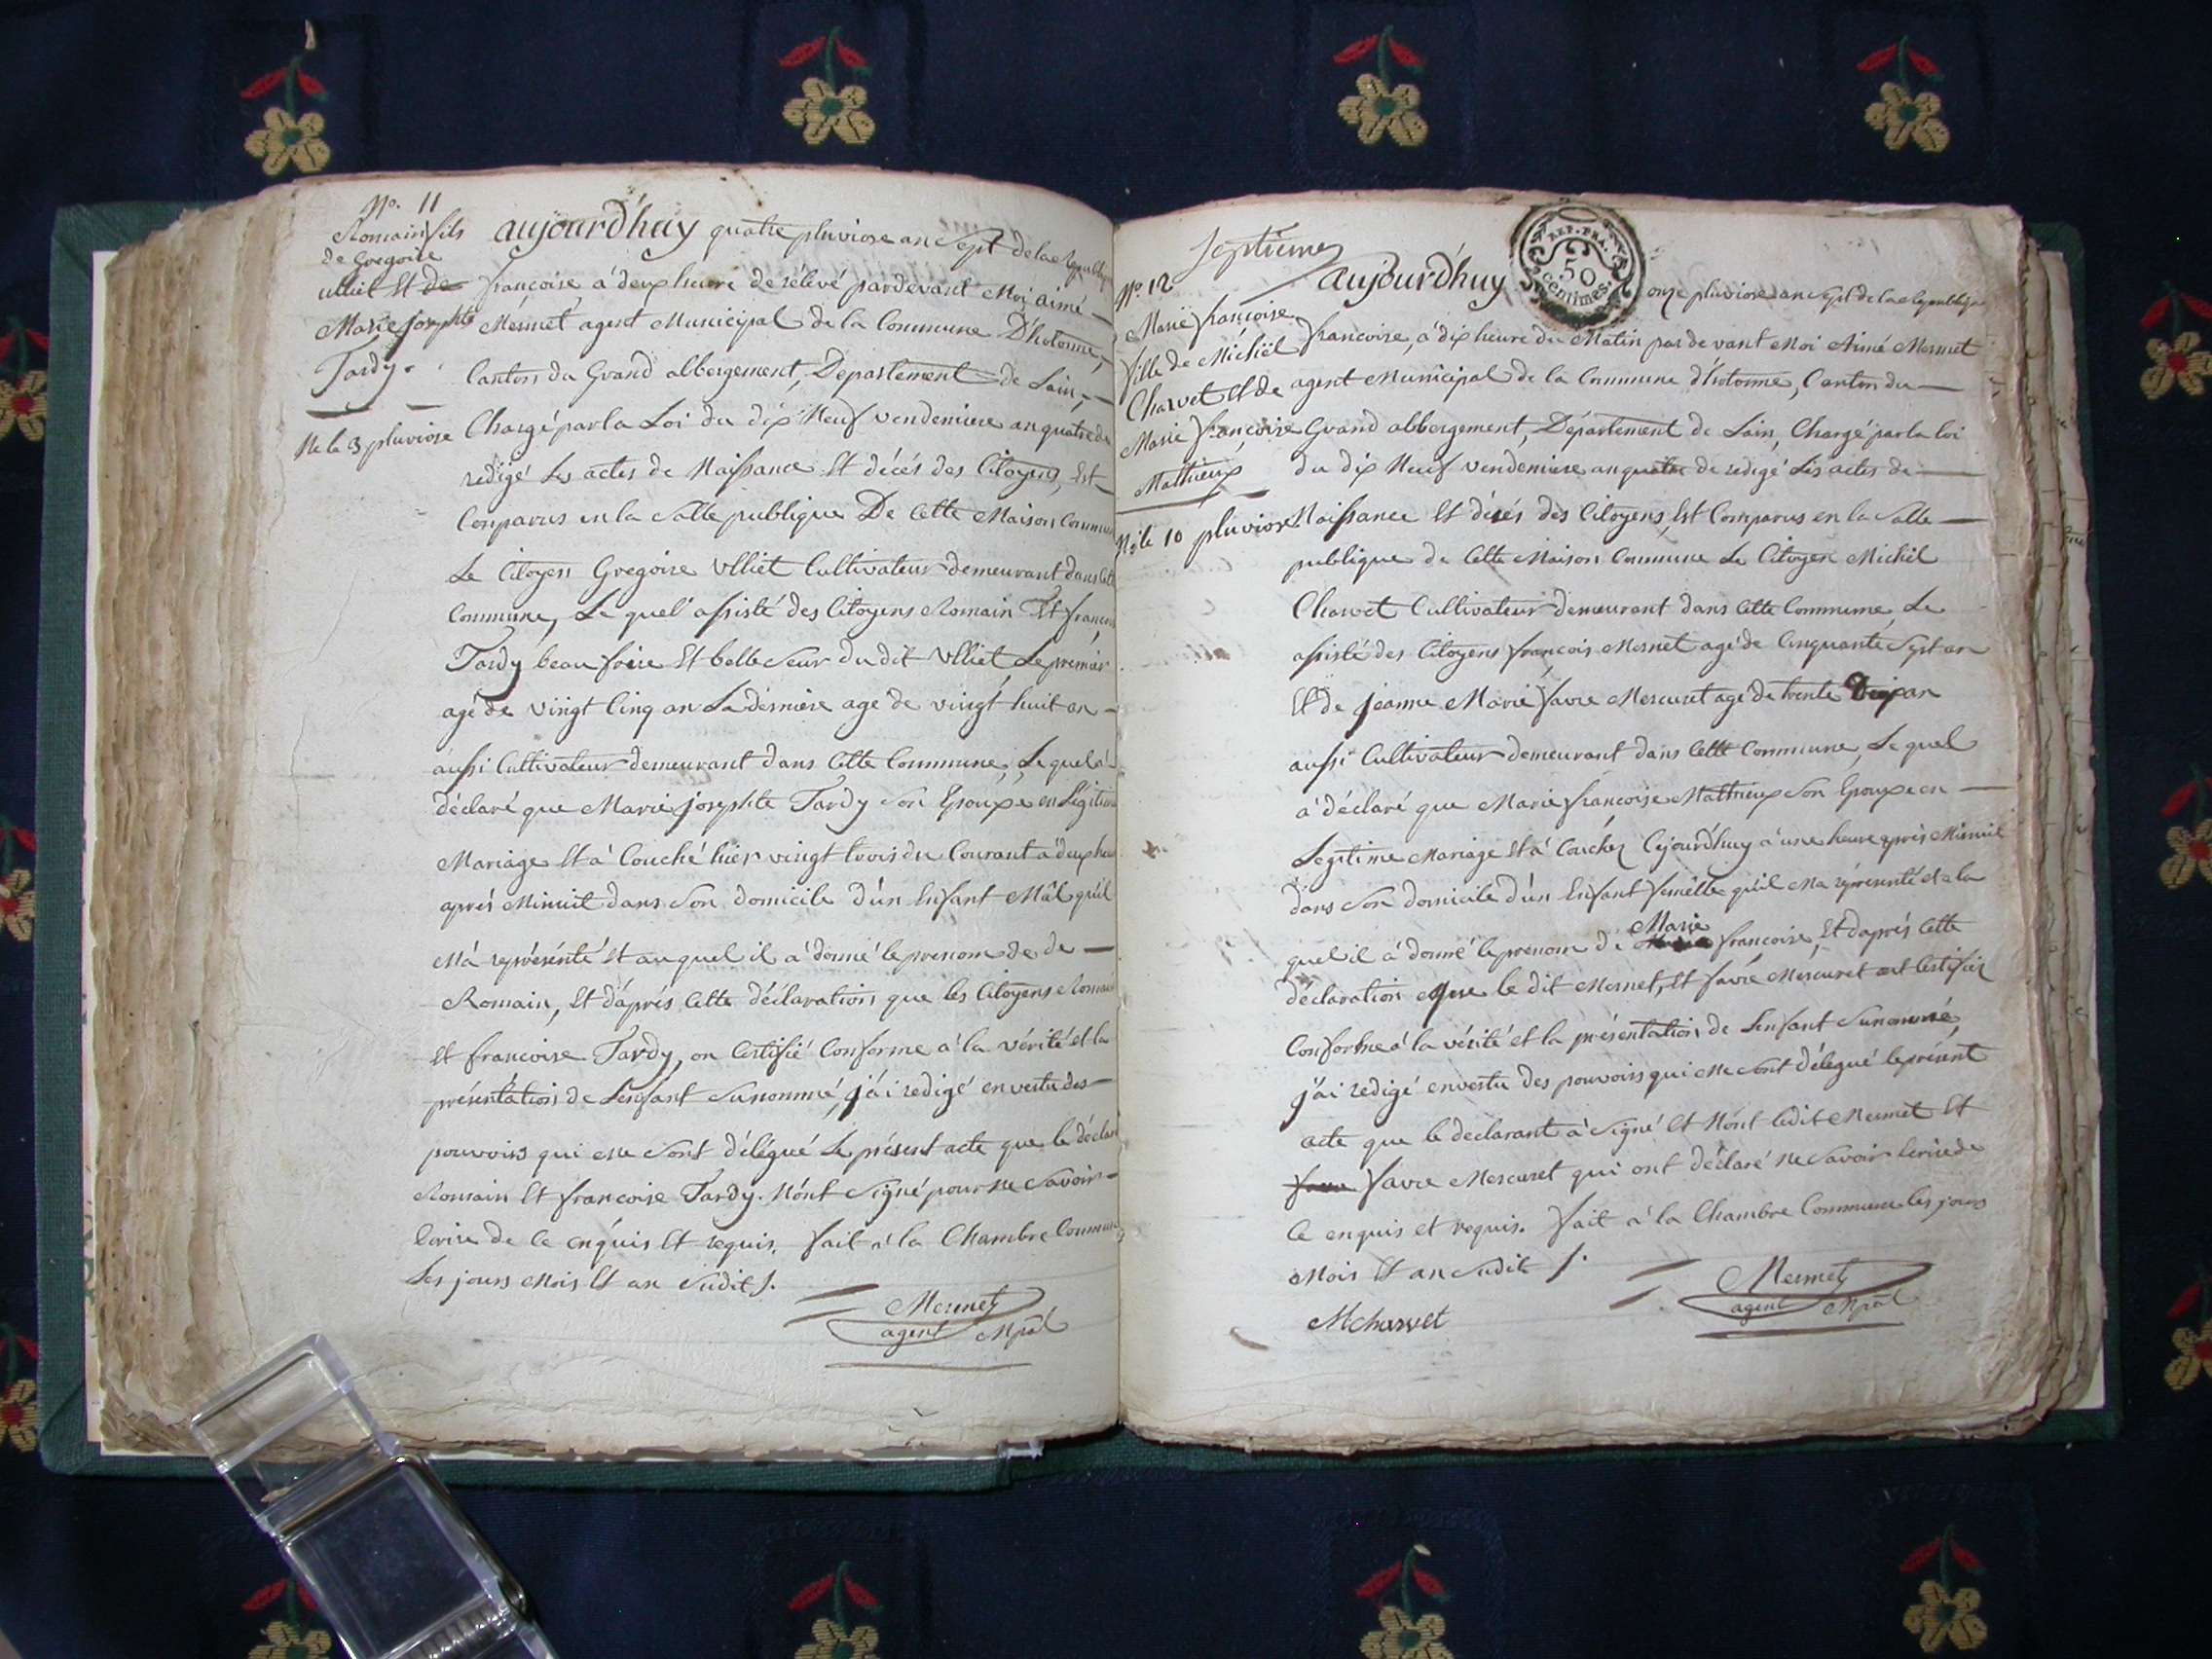 No. 11
Romain fils
de Gregoire
ulliet Et de
Marie josephte
Tardy.
Né le 3 pluviose
aujourd'huy quatre pluviose an Sept de la Republiq
françoise à deux heure de rélévé pardevant Moi aimé
Mermet agent Municipal de la Commune D'hotonne,
Canton du Grand abbergement, Departement de Lain,
Chargé par la Loi du dix Neuf vendemiere an quatre de
redigé Les actes de Naissance Et décés des Citoyens, Est
Conparus en la Salle publique De Cette Maison Commun
Le Citoyen Gregoire Ulliet Cultivateur demeurant dans Cett
Commune, Le quel assisté des Citoyens Romain Et françoi
Tardy beau frère Et belle Seur du dit Ulliet, Le premier
agé de vingt Cinq an La dérnière age de vingt huit an
aussi Cultivateur demeurant dans Cette Commune, Le quel à
déclaré que Marie josephte Tardy Son Epouxe en Légitime
Mariage Et à Couché hier vingt trois du Courant à deux heu
aprés Minuit dans Son domicile d'un Enfant Mâl qu'il
M'à représénté Et auquel il a donné le prenom de de
Romain, Et d'aprés Cette déclaration que les Citoyens Romain
Et francoise Tardy, on Certifié Conforme à la vérité et la
présentation de Lenfant Sunommé, j'ai redigé en vertu des
pouvoirs qui me Sont délégué Le présent acte que le déclar
Romain Et francoise Tardy. N'ont Signé pour ne Savoir
Ecrire de Ce enquis Et requis. fait à la Chambre Commune
Les jours Mois Et an Sudit /.
Mermet
agent Mpal
Septième
No. 12
Marie françoise
fille de Michiel
Charvet Et de
Marie françoise
Mathieux
Né le 10 pluviose
REP. FRA.
50
Centimes.
aujourd'huy onze pluviose an Sept de la Republique
francoise, à dix heure du Matin par devant Moi Aimé Mermet
agent Municipal de la Commune d'hotonne, Canton du
Grand abbergement, Département de Lain, Chargé par la loi
du dix Neuf vendemiere an quatre de redigé Les actes de
Naissance Et décés des Citoyens, Est Comparus en la Salle
publique de Cette Maison Commune Le Citoyen Michiel
Charvet Cultivateur demeurant dans Cette Commune, Le
assisté des Citoyens françois Mermet agé de Cinquante Sept an
Et de jeanne Marie favre Mercuret agé de trente an
aussi Cultivateur demeurant dans Cette Commune, Le quel
à déclaré que Marie françoise Mathieux Son Epouxe en
Legitime Mariage Et à Couchez Cejourd'huy à une heure après Minuit
dans Son domicile d'un Enfant femélle qu'il Ma réprésenté et a la
quel il à donné le prenom de Marie francoise, Et d'aprés Cette
déclaration que le dit Mermet, Et favre Mercuret ont Certifiez
Conforme à la vérité et la présentation de Lenfant Sunommé,
j'ai redigé en vertu des pouvoirs qui me Sont délégué le présent
acte que le declarant à Signé Et N'ont ledit Mermet Et
favre Mercuret qui ont déclaré ne Savoir Ecrire de
Ce enquis et requis. fait à la Chambre Commune les jours
Mois Et an Sudit /.
Mermet
agent Mpal
M charvet